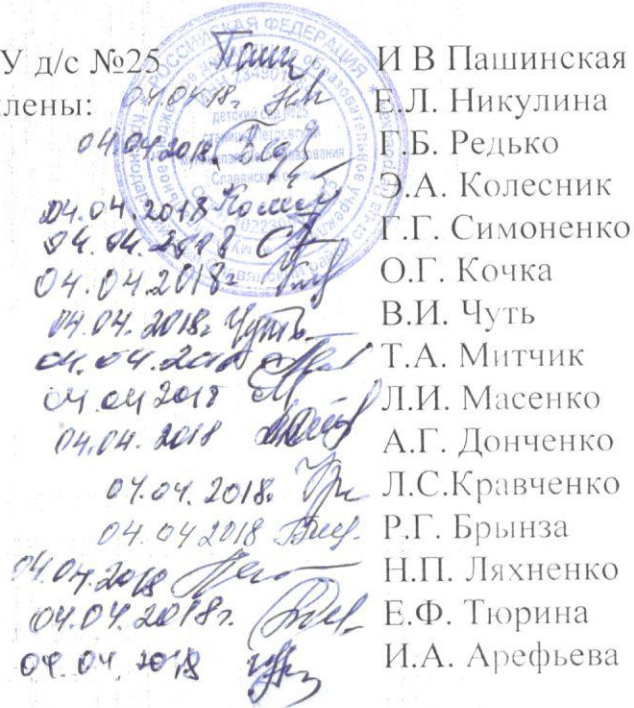 У д/с №25 И В Пашинская
лены: 04.04.18г. Е.Л. Никулина
04.04.2018г. Г.Б. Редько
Э.А. Колесник
04.04.2018 Г.Г. Симоненко
04.04.2018 О.Г. Кочка
04.04.2018г
04.04.2018г Чуть В.И. Чуть
04.04.2018 Т.А. Митчик
04 04 2018 Л.И. Масенко
04.04.2018 А.Г. Донченко
04.04.2018г Л.С.Кравченко
04.04.2018 Р.Г. Брынза
04.04.2018 Н.П. Ляхненко
04.04.2018г. Е.Ф. Тюрина
04.04.2018 И.А. Арефьева
РОССИЙСКАЯ ФЕДЕРАЦИЯ
детский сад №25